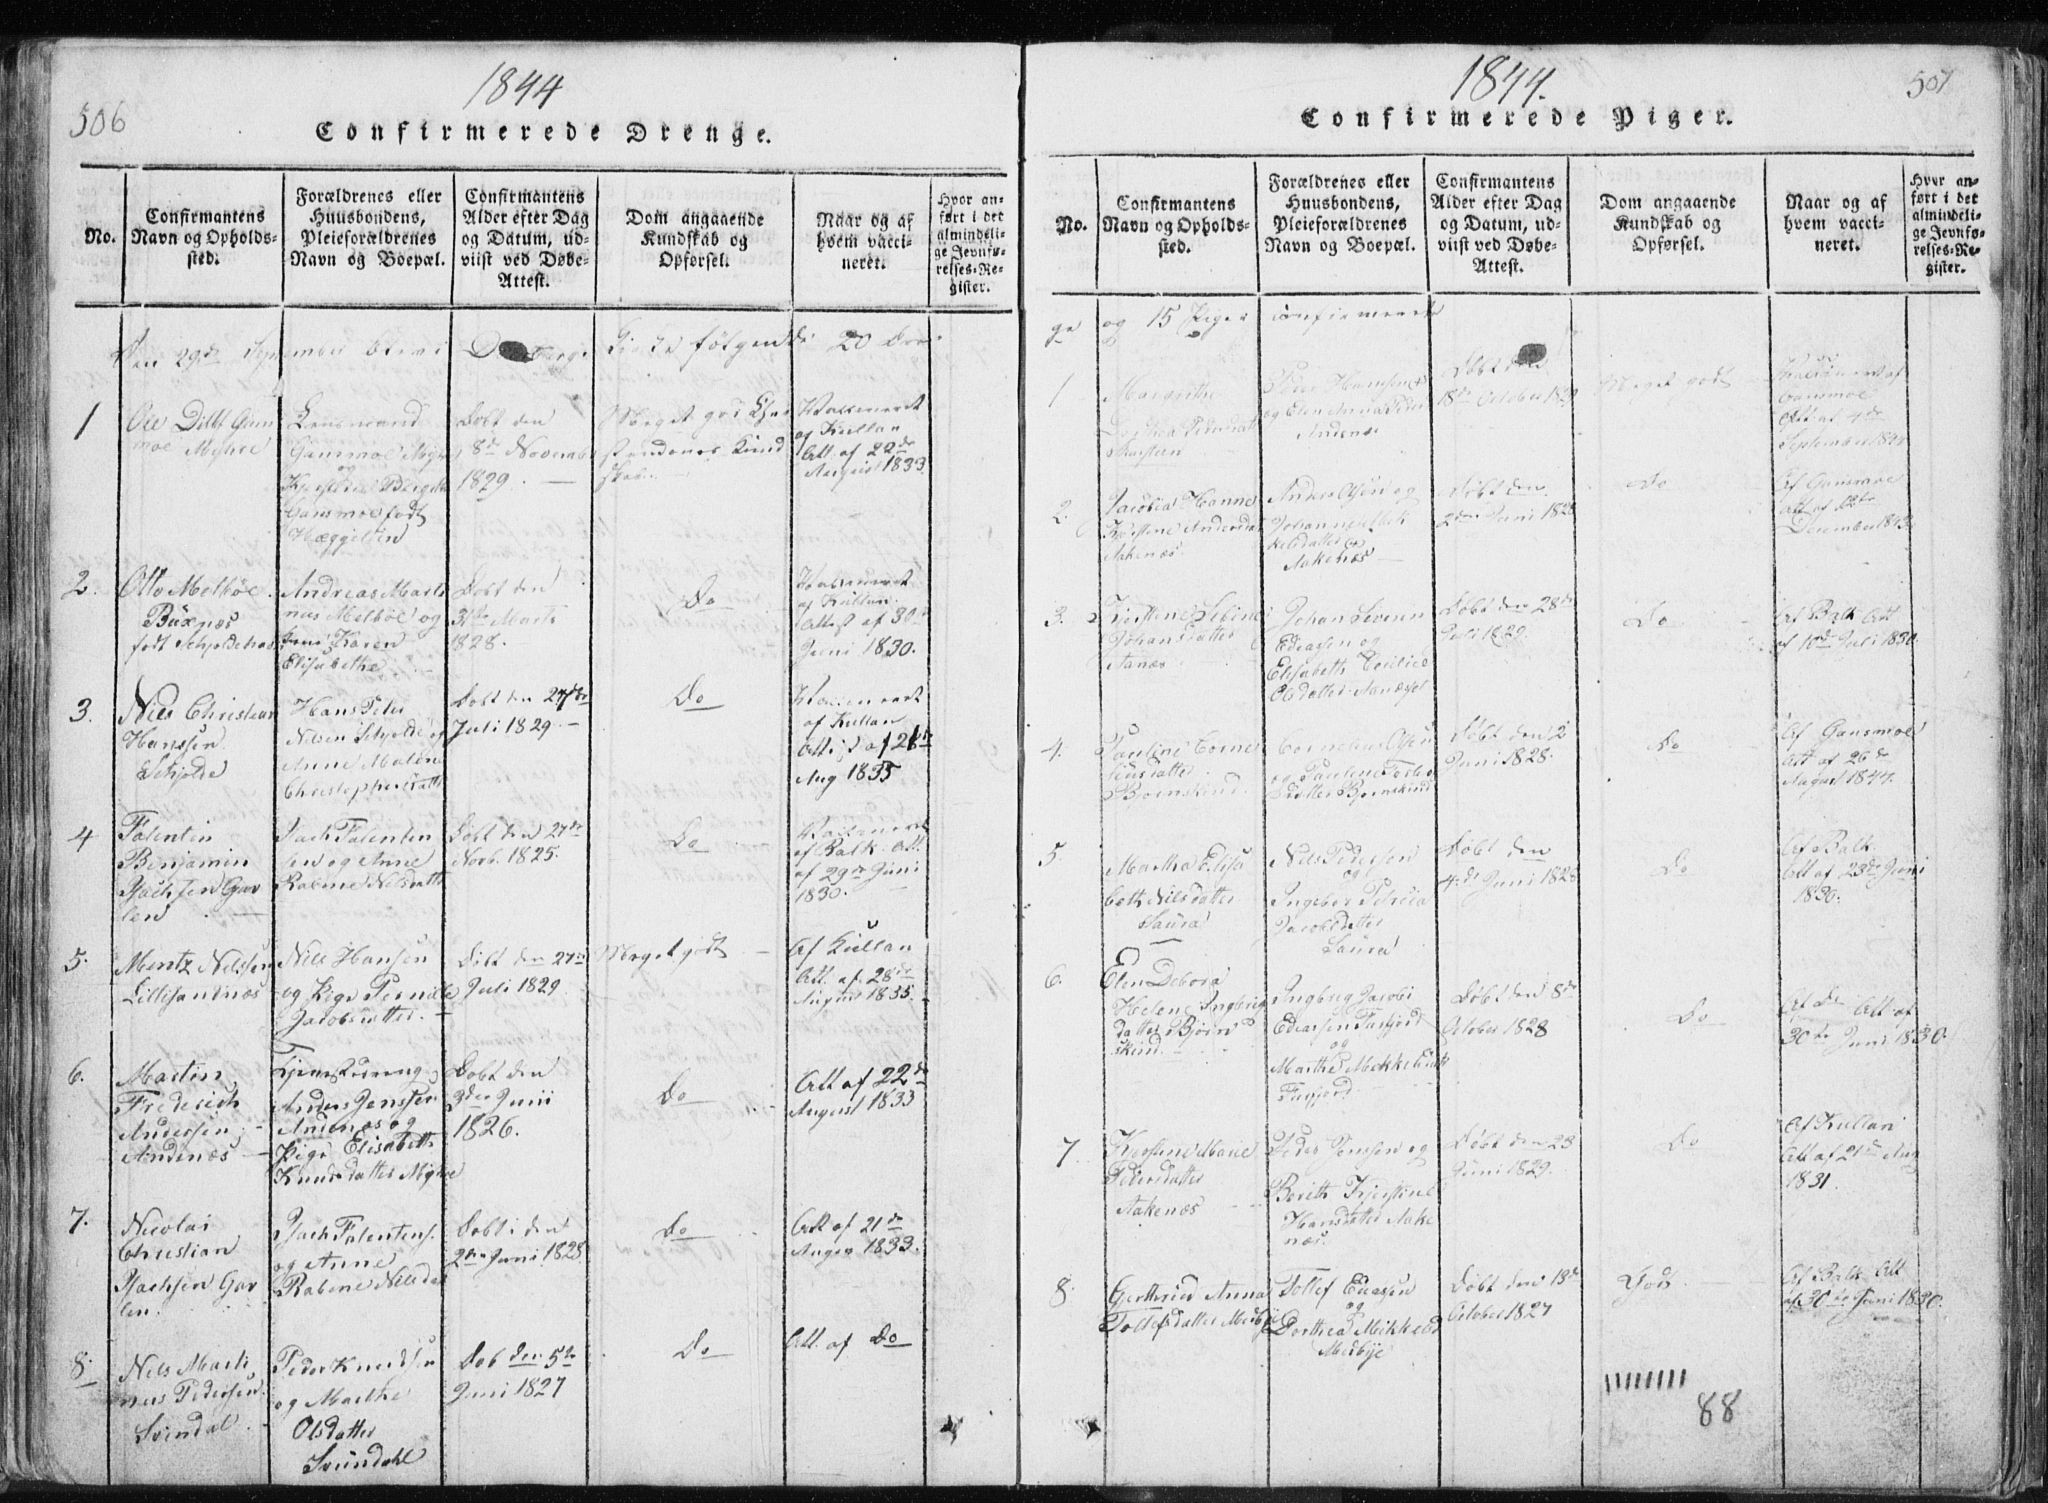 506
1844
Confirmerede Drenge.
No.
Confirmantens
Navn og Opholds-
sted.
Forældrenes eller
Huusbondens,
Pleieforældrenes
Navn og Boepæl.
Confirmantens
Alder efter Dag
og Datum, ud-
viist ved Døbe-
Attest.
Dom angaaende
Kundskab og
Opførsel.
Naar og af
hvem vacci-
neret.
Hvor an-
ført i det
almindeli-
ge Jevnfø-
relses-Re-
gister.
Den 29de September bleve i Kirke følgende 20 Dren
1
Ole Ditlf Gans
moe Myhre
Lensmand
Gansmoe
og
Gansmoe født
Hæggelsen
Døbt den
8de Novembr
1829.
Meget god Chri
stendoms Kund
skab.
Vakcineret
af Kullan
Att. af 22de
August 1833
2.
Otto Melbøe
Buxnæs
født Schjoldehavn
Andreas Marti
nus Melbøe og
Karen
Elisabethe
Døbt den
31te Marts
1828.
Do
Vakcineret
af Kullan
Attest af 30te
Juni 1830.
3.
Niels Christian
Hanssen
Schjolde
Hans Peter
Nilsen Schjolde og
Anne Malene
Christophersdatter
Døbt den 27de
Juli 1829.
Do
Vakcineret
af Kullan
Attest af 21de
Aug 1835
4
Falentin
Benjamin
Isachsen Gav
len
Isach Falentin
sen og Anne
Rabene Nilsdatter
Døbt den 27de
Novb. 1825.
Do
Vakcineret
af Balk. Att.
af 29de Juni
1830.
5.
Mentz Nilssen
Lillisandnæs
Nils Hansen
og Pige Pernille
Jacobsdatter.
Døbt den 27de
Juli 1829
Meget godt
Af Kullan
Att. af 28de
August 1835.
6.
Martin
Frederich
Andersen
Andenæs
Tjenstdreng
Anders Jenssen
Andenæs og
Pige Elisabeth
Knudsdatter Myhre
Døbt den
3die Junii
1826.
Do
Att af 22de
August 1833
7.
Nicolai
Christian
Isachsen Gav
len.
Isach Falentens.
og Anne
Rabene Nilsdat
Døbt i den
2den Juni 1828
Do
Att af 21de
August 1833.
8.
Nils Marti
nus Pedersen
Svendal
Peder Knudsen
og Marthe
Olsdatter
Svendahl
Døb den 5te
Juni 1827
Do
Att. af Do
507
1844.
Confirmerede Piger.
No.
Confirmantens
Navn og Opholds-
sted.
Forældrenes eller
Huusbondens,
Pleieforældrenes
Navn og Boepæl.
Confirmantens
Alder efter Dag
og Datum, ud-
viist ved Døbe-
Attest.
Dom angaaende
Kundskab og
Opførsel.
Naar og af
hvem vacci-
neret.
Hvor an-
ført i det
almindeli-
ge Jevnfø-
relses-Re-
gister.
ge og 15 Piger confirmerede
1
Margrethe
Dorthea Pedersdatter
Peder Hanssen
og Elen Anna Peders
Andenæs
Døbt den
18de October 1829
Meget godt
Vakcineret af
Gansmoe
Att af 4de
September 1844
2.
Jacobia Hanne
Kjerstene Andersdat
Aakenæs
Anders Olsen og
Johanne
Aakenæs
Døbt den
2den Juni 1828
Do
Af Gansmoe
Att af 12te
December 1843
3.
Kjerstene Sebine
Johansdatter
Aanæs
Johan Severin
Ediassen og
Elisabeth Cecilie
Olsdatter Aanæsset
Døbt den 28de
Juli 1829.
Do
Af Balk Att
af 10de Juli 1830
4.
Pauline Corne
liusdatter
Bjørnskind
Cornelius Olsen
og Paulene
datter Bjørnskind
Døbt den 2
Juni 1828.
Do
Af Gansmoe
Att af 26de
August 1844.
5.
Martha Elisa
beth Nilsdatter
Saura
Nils Pedersen
og
Ingebor Petrica
Jacobsdatter
Saura
Døbt den
4de Juni 1828
Do
Af Balk.
Att af 23de Juni
1830.
6.
Elen Debora
Helene Ingbrig
datter Bjørn
skind.
Ingbrig Jacobi
Ediassen Fuefjord
og
Marthe Mekkelsdt
Fuefjord
Døbt den 8de
October 1828
Do
Af Do Att af
30te Juni 1830.
7
Kjerstine Marie
Pedersdatter
Aakenæs
Peder Jenssen og
Berith Kjerstine
Hansdatter Aake
næs.
Døbt den 23
Juni 1829.
Do
Af Kullan
Att af 21de Aug
1831.
8.
Gerthrud Anna
Tollefsdatter Medbye
Tollef Ediassen
og
Dorthea Mikkelsd
Medbye
Døbt den 18de
October 1827
God.
Af Balk Att
af 30te Juni 1830.
88